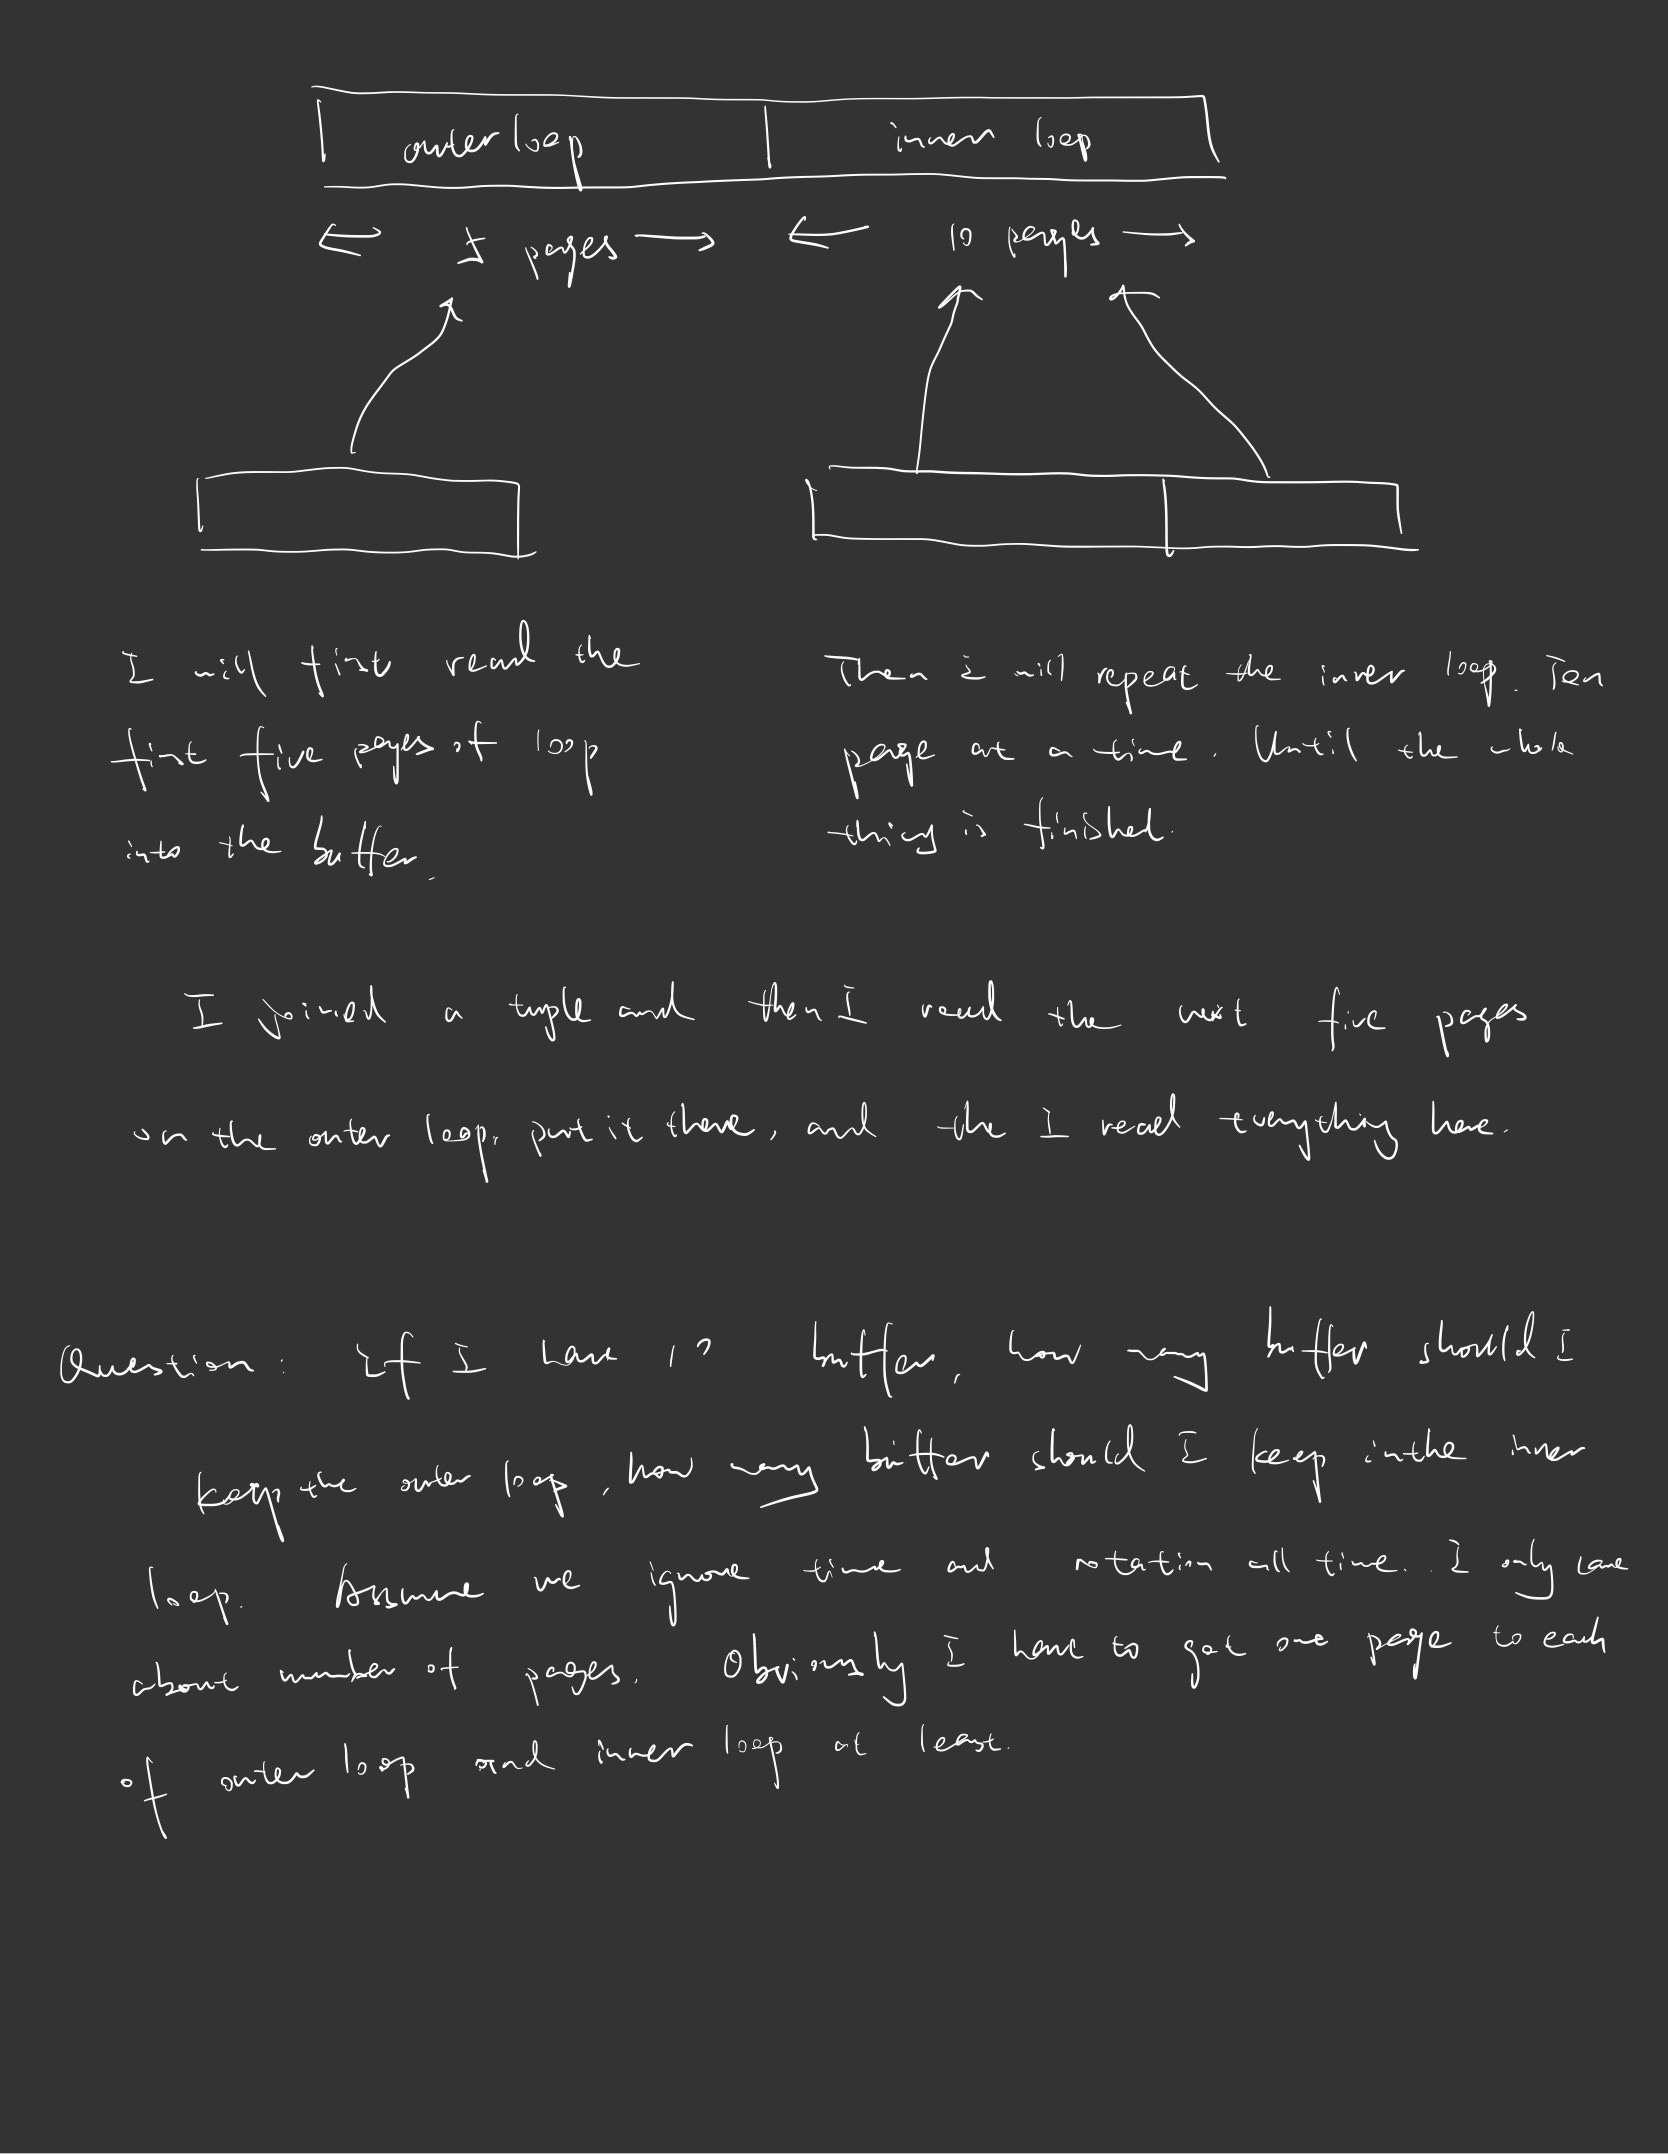 outer loop inner loop
5 pages 10 pages
I will first read the
first five pages of loop
into the buffer.
Then i will repeat the inner loop. Ten
page at a time. Until the whole
thing is finished.
I joined a tuple and then I read the next five pages
on the outer loop, put it there, and the I read everything here.
Question: If I have buffer, how many buffer should I
keep the outer loop, how many buffer should I keep in the inner
loop. Assume we ignore time and rotation all time. I only care
about number of pages. Obviously I have to get one page to each
of outer loop and inner loop at least.